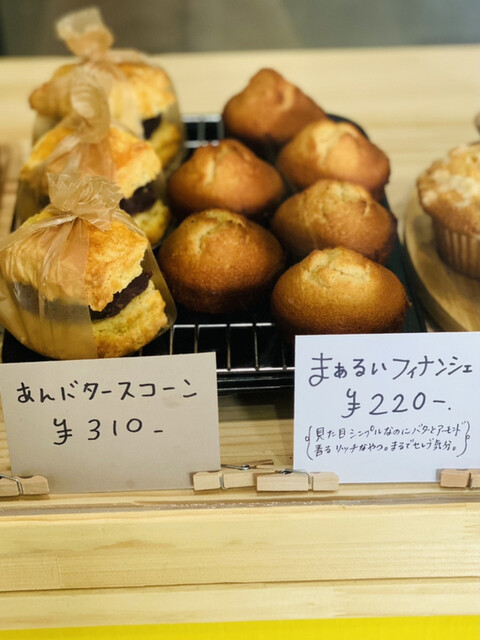 あんバタースコーン
¥310-
まぁるいフィナンシェ
¥220-.
(見た目シンプルなのにバターとアーモンド
香るリッチなやつ。まるでセレブ気分。)